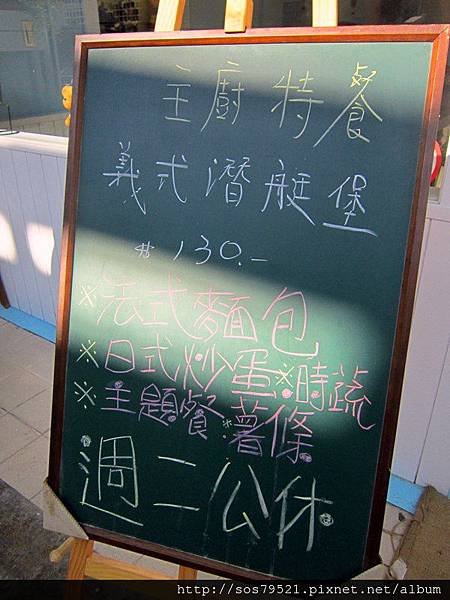 主廚特餐
義式潛艇堡
$130.-
※法式麵包
※日式炒蛋※時蔬
※主題餐※薯條
週二公休
http://sos79521.pixnet.net/album